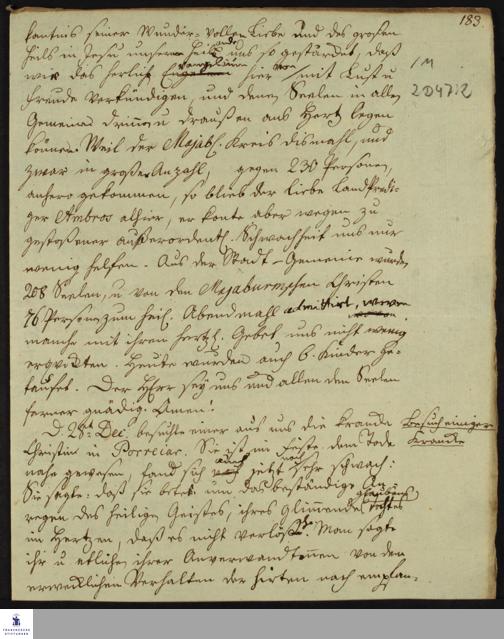 183.
kantnis seiner Wunder-vollen Liebe und des großen
Heils in Jesu unserm Heilande uns so gestärcket, daß
wir das herrliche Evangelium hier mit Lust u
Freude verkündigen, und denen Seelen in allen
Gemeinen drinnen u draußen ans Hertz legen
können. Weil der Majab. Kreis dismahl, und
zwar in großer Anzahl, gegen 230 Personen,
anhero gekommen, so blieb der liebe Landpredi-
ger Ambros alhier, er konte aber wegen zu
gestoßener außerordentl. Schwachheit uns nur
wenig helfen. Aus der Stadt-Gemeine wurden
208 Seelen, u von den Majaburmschen Christen
76 Personen zum heil. Abendmahl admittirt,
manche mit ihrem hertzl. Gebet uns nicht wenig
erqvickten. Heute wurden auch 6. Kinder ge-
taufet. Der HErr sey uns und allen den Seelen
ferner gnädig. Amen.
D. 28t Dec. besuchte einer aus uns die krancke
Besuch einiger
Krancke
Christin in Porreiar. Sie ist im Fieber dem Tode
nahe gewesen, fand sich auch jetzt noch sehr schwach.
Sie sagte: daß sie bete um das beständige An-
regen des heiligen Geistes, ihres glimmenden Glaubens
Dochtes
im Hertzen, daß es nicht verlösche. Man sagte
ihr u etlichen ihrer Anverwandtinnen von dem
erwecklichen Verhalten der Hirten nach empfan-
/M
2 D 47:2
FRANCKESCHE
STIFTUNGEN